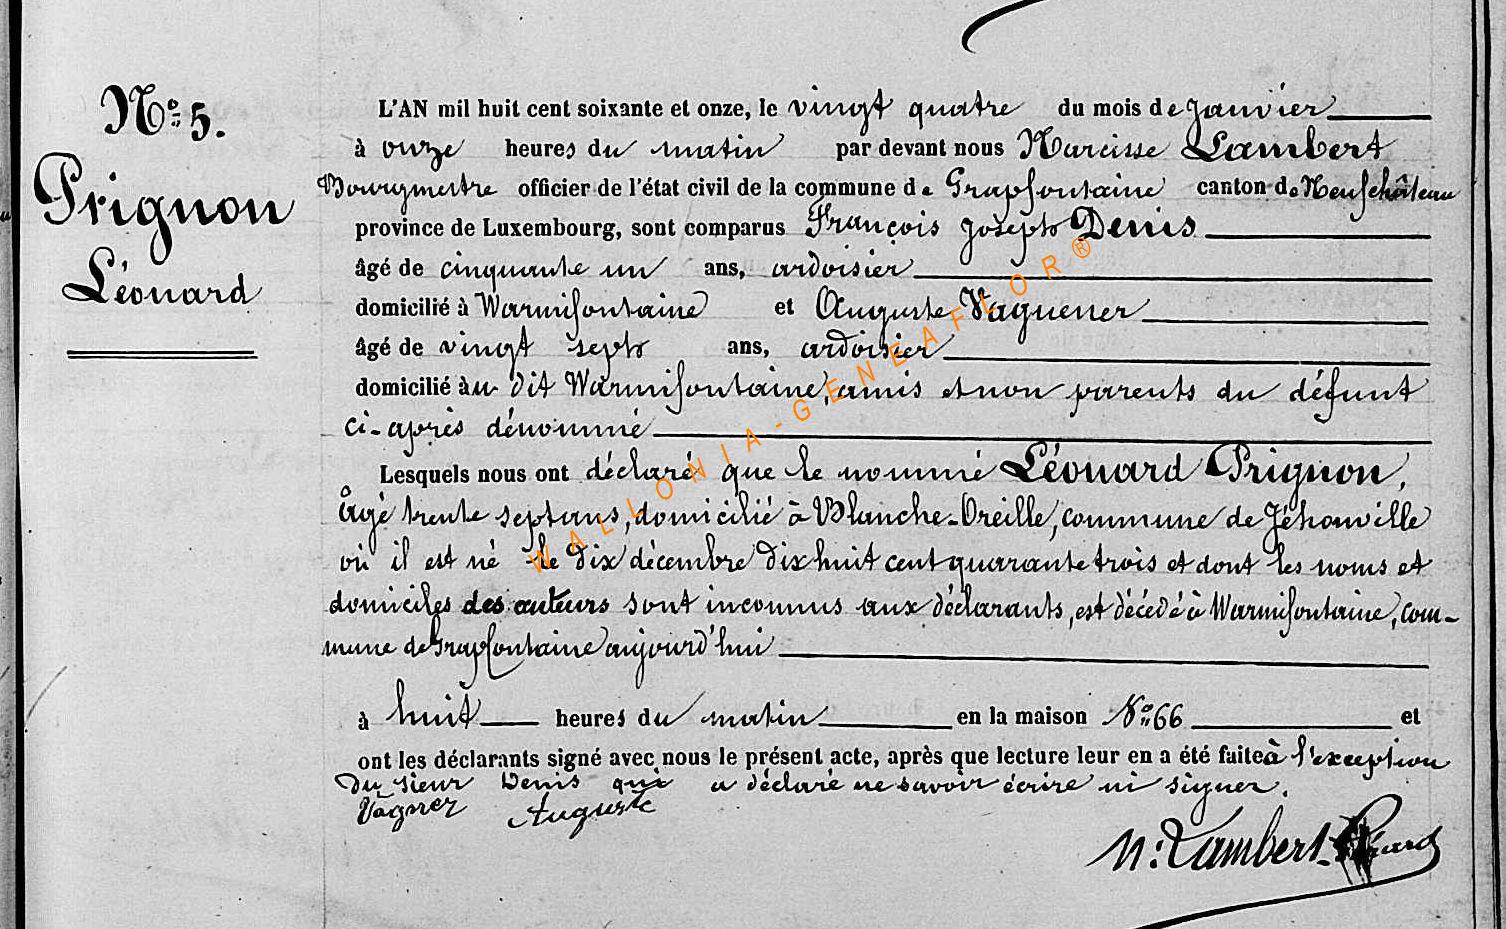 Nº 5.
Prignon
Léonard
L'AN mil huit cent soixante et onze, le vingt quatre du mois de Janvier
à onze heures du matin par devant nous Narcisse Lambert
Bourgmestre officier de l'état civil de la commune de Grapfontaine canton de Neufchâteau
province de Luxembourg, sont comparus François Joseph Denis
âgé de cinquante un ans, ardoisier
domicilié à Warmifontaine et Auguste Vaguener
âgé de vingt sept ans, ardoisier
domicilié au dit Warmifontaine, amis et non parents du défunt
ci-après dénommé
Lesquels nous ont déclaré que le nommé Léonard Prignon,
âgé trente sept ans, domicilié à Blanche-Oreille, commune de Jéhonville
où il est né le dix décembre dix huit cent quarante trois et dont les noms et
domiciles des auteurs sont inconnus aux déclarants, est décédé à Warmifontaine, com-
mune de Grapfontaine aujourd'hui
à huit heures du matin en la maison Nº 66 et
ont les déclarants signé avec nous le présent acte, après que lecture leur en a été faite à l'exception
du sieur Denis qui a déclaré ne savoir écrire ni signer.
Vagner Auguste
N: Lambert
WALLONIA-GENEAFLOR®